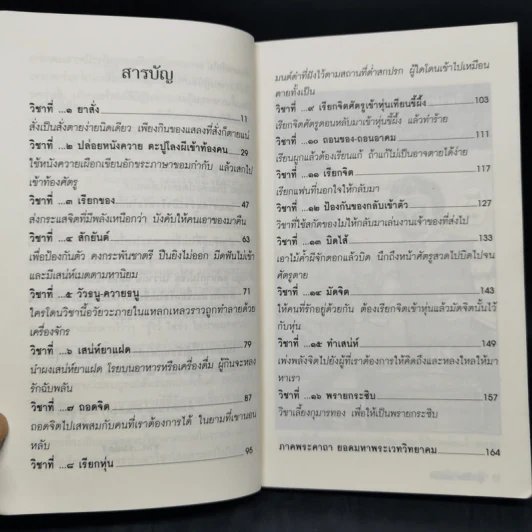 สารบัญ
วิชาที่ ...๑ ยาสั่ง 11
สั่งเป็นสั่งตายง่ายนิดเดียว เพียงกินของแสลงที่สั่งก็ตายแน่
วิชาที่ ...๒ ปล่อยหนังควาย ตะปูโลงผีเข้าท้องคน 29
ใช้หนังควายเผือกเขียนอักขระภาษาขอมกำกับ แล้วเสกไป
เข้าท้องศัตรู
วิชาที่ ...๓ เรียกของ 47
ส่งกระแสจิตที่มีพลังเหนือกว่า บังคับให้คนเอาของมาคืน
วิชาที่ ...๔ สักยันต์ 63
เพื่อป้องกันตัว คงกระพันชาตรี ปืนยิงไม่ออก มีดฟันไม่เข้า
และมีเสน่ห์เมตตามหานิยม
วิชาที่ ...๕ วัวธนู-ควายธนู 71
ใครโดนวิชานี้อวัยวะภายในแหลกเหลวราวถูกทำลายด้วย
เครื่องจักร
วิชาที่ ...๖ เสน่ห์ยาแฝด 79
นำผงเสน่ห์ยาแฝด โรยบนอาหารหรือเครื่องดื่ม ผู้กินจะหลง
รักฉับพลัน
วิชาที่ ...๗ ถอดจิต 87
ถอดจิตไปเสพสมกับคนที่เราต้องการได้ ในยามที่เขานอน
หลับ
วิชาที่ ...๘ เรียกหุ่น 95
มนต์ดำที่ฝังไว้ตามสถานที่ต่ำสกปรก ผู้ใดโดนเข้าไปเหมือน
ตายทั้งเป็น
วิชาที่ ...๙ เรียกจิตศัตรูเข้าหุ่นเทียนขี้ผึ้ง 103
เรียกจิตศัตรูตอนหลับมาเข้าหุ่นขี้ผึ้ง แล้วทำร้าย
วิชาที่ ...๑๐ ถอนของ-ถอนอาคม 111
เรียนผูกแล้วต้องเรียนแก้ ถ้าแก้ไม่เป็นอาจตายได้ง่าย
วิชาที่ ...๑๑ เรียกจิต 117
เรียกแฟนที่นอกใจให้กลับมา
วิชาที่ ...๑๒ ป้องกันของกลับเข้าตัว 127
วิชาใช้สกัดของไม่ให้กลับมาเล่นงานเจ้าของที่ส่งไป
วิชาที่ ...๑๓ บิดไส้ 133
เอาไม้ค้ำผีจักตอกแล้วบิด นึกถึงหน้าศัตรูสวดไปบิดไปจน
ศัตรูตาย
วิชาที่ ...๑๔ มัดจิต 143
ให้คนที่รักอยู่ด้วยกัน ต้องเรียกจิตเข้าหุ่นแล้วมัดจิตนั้นไว้
กับหุ่น
วิชาที่ ...๑๕ ทำเสน่ห์ 149
เพ่งพลังจิตไปยังผู้ที่เราต้องการให้คิดถึงและหลงใหลให้มา
หาเรา
วิชาที่ ...๑๖ พรายกระซิบ 157
วิชาเลี้ยงกุมารทอง เพื่อให้เป็นพรายกระซิบ
ภาคพระคาถา ยอดมหาพระเวทวิทยาคม 164